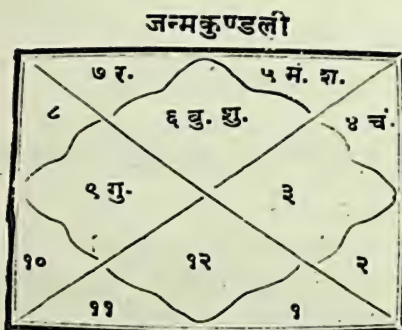 जन्मकुण्डली
७ र. ५ मं. श.
८ ६ बु. शु. ४ चं.
९ गु. ३
१० १२ २
११ १